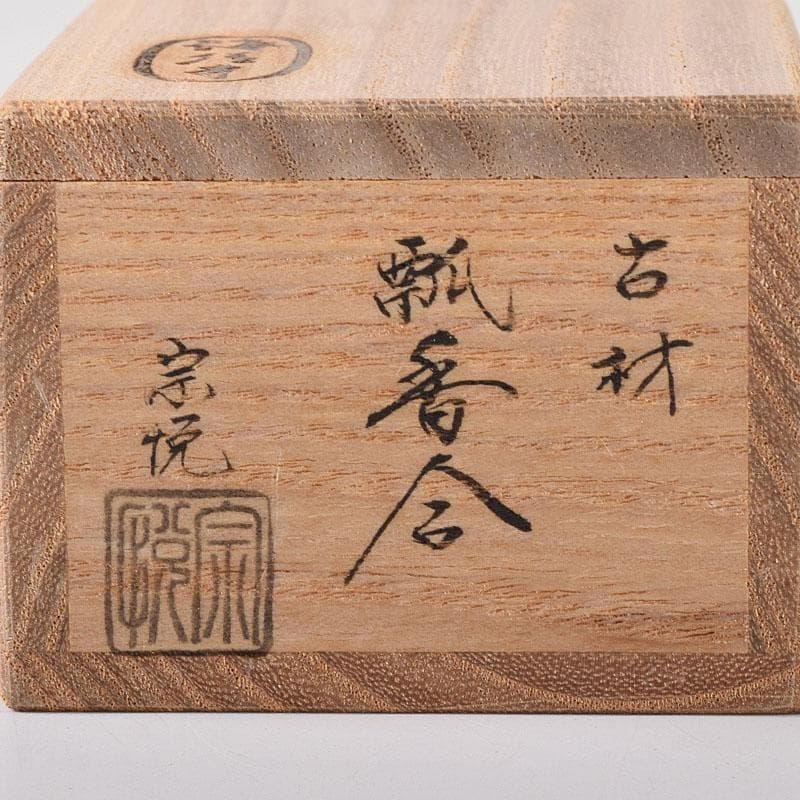 古材
瓢香合
宗悦
宗悦